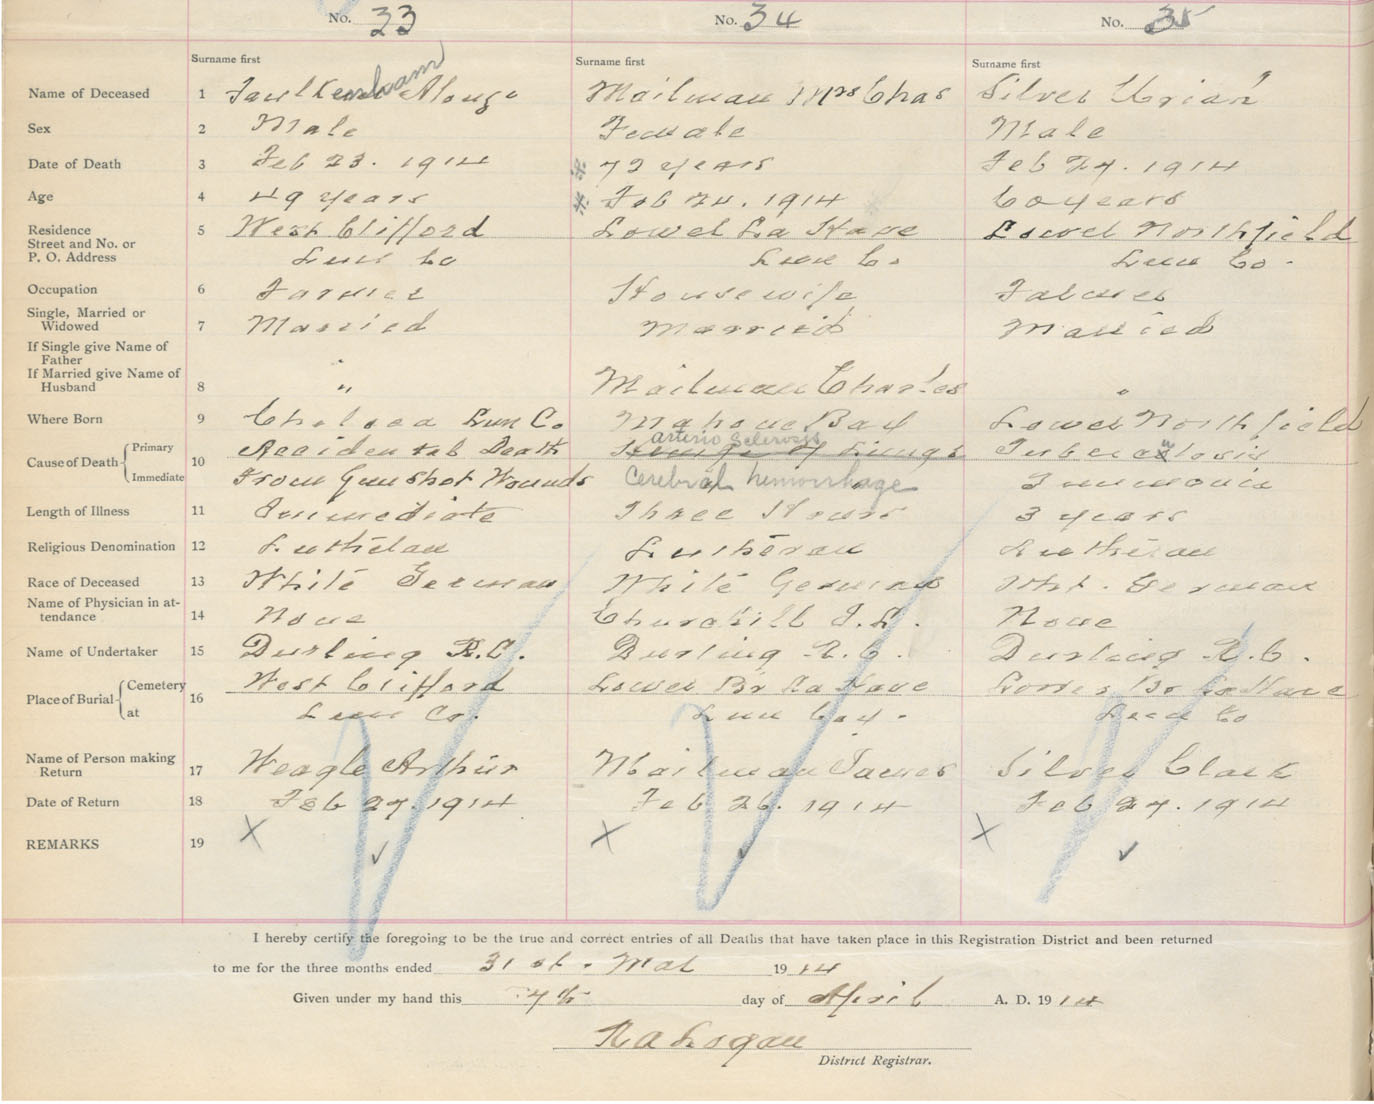 No. 33 No. 34 No. 35
Surname first Surname first Surname first
Name of Deceased 1 Alonzo Mailman Mrs Chas Silver Urian
Sex 2 Male Female Male
Date of Death 3 Feb 23. 1914 72 years Feb 27. 1914
Age 4 49 years Feb 24. 1914 60 years
Residence 5 West Clifford Lower La Have Lower Northfield
Street and No. or
P. O. Address Lun Co Lun Co. Lun Co.
Occupation 6 Farmer Housewife Farmer
Single, Married or
Widowed 7 Married Married Married
If Single give Name of
Father
If Married give Name of
Husband 8 " Mailman Charles "
Where Born 9 Chelsea Lun Co. Mahone Bay Lower Northfield
Cause of Death Primary 10 Accidental Death arterio sclerosis of Lungs Tuberculosis
Immediate From Gunshot Wounds Cerebral hemorrhage
Length of Illness 11 Immediate Three Hours 3 years
Religious Denomination 12 Lutheran Lutheran Lutheran
Race of Deceased 13 White German White German Wht. German
Name of Physician in at-
tendance 14 None Churchill None
Name of Undertaker 15 Durling R.C. Durling R.C. Durling R.C.
Place of Burial Cemetery 16 West Clifford Lower Br La Have Lower Br La Have
at Lun Co. Lun Co. Lun Co
Name of Person making
Return 17 Weagle Arthur Mailman James Silver Clark
Date of Return 18 Feb 27. 1914 Feb 26. 1914 Feb 27. 1914
REMARKS 19 X X X
I hereby certify the foregoing to be the true and correct entries of all Deaths that have taken place in this Registration District and been returned
to me for the three months ended 31st. Mar 1914
Given under my hand this 7th day of April A. D. 1914
R A Logan
District Registrar.